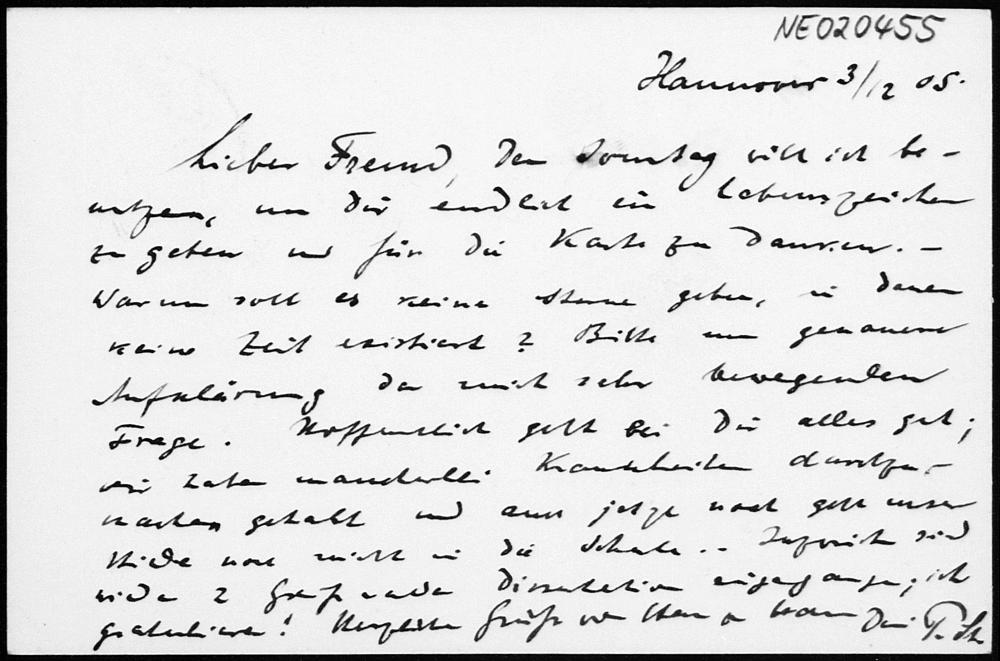 NE020455
Hannover 3/12 05.
Lieber Freund, den Sonntag will ich be-
nutzen, um Dir endlich ein Lebenszeichen
zu geben und für die Karte zu danken. –
Warum soll es keine Sterne geben, in denen
keine Zeit existiert? Bitte um genauere
Aufklärung der mich sehr bewegenden
Frage. Hoffentlich geht bei Dir alles gut;
wir haben mancherlei Krankheiten durchzu-
machen gehabt und auch jetzt noch geht unser
noch nicht in die Schule. –
wieder 2 Dissertation eingegangen; ich
gratuliere! Herzliche Grüße von Haus zu Haus Dein P. St.